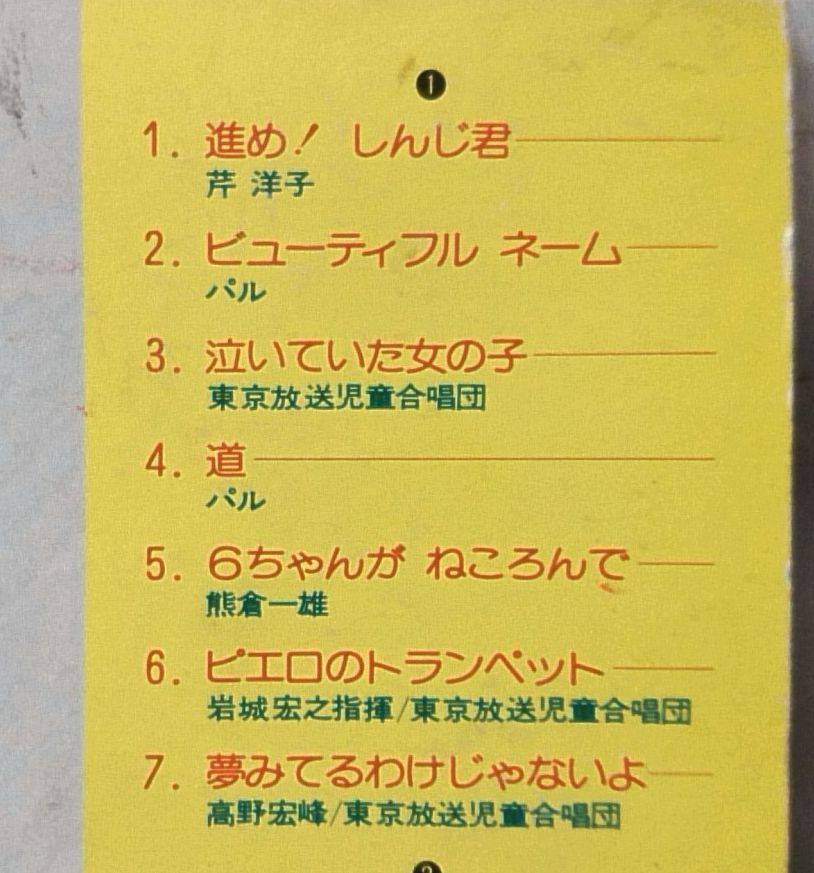 ❶
1. 進め! しんじ君
芹 洋子
2. ビューティフル ネーム
パル
3. 泣いていた女の子
東京放送児童合唱団
4. 道
パル
5. 6ちゃんが ねころんで
熊倉一雄
6. ピエロのトランペット
岩城宏之指揮/東京放送児童合唱団
7. 夢みてるわけじゃないよ
高野宏峰/東京放送児童合唱団